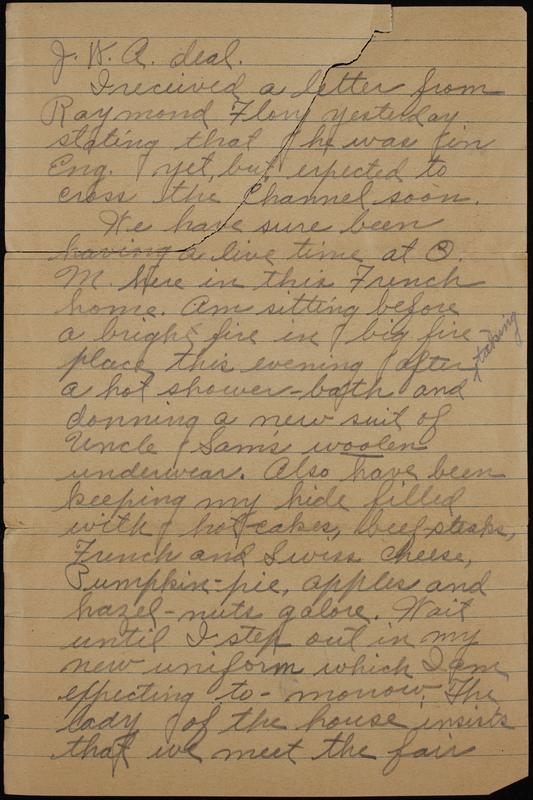 J. W. A. deal.
I received a letter from
Raymond Flory yesterday
stating that he was in
Eng. yet, but expected to
cross the Channel soon.
We have sure been
having a live time at O.
M. here in this French
home. Am sitting before
a bright fire in big fire
place this evening after taking
a hot shower-bath and
donning a new suit of
Uncle Sam's woolen
underwear. Also have been
keeping my hide filled
with hot-cakes, beef-steaks,
French and Swiss Cheese,
Pumpkin-pie, apples and
hazel-nuts galore. Wait
until I step out in my
new uniform which I am
expecting to-morrow. The
lady of the house insists
that we meet the fair